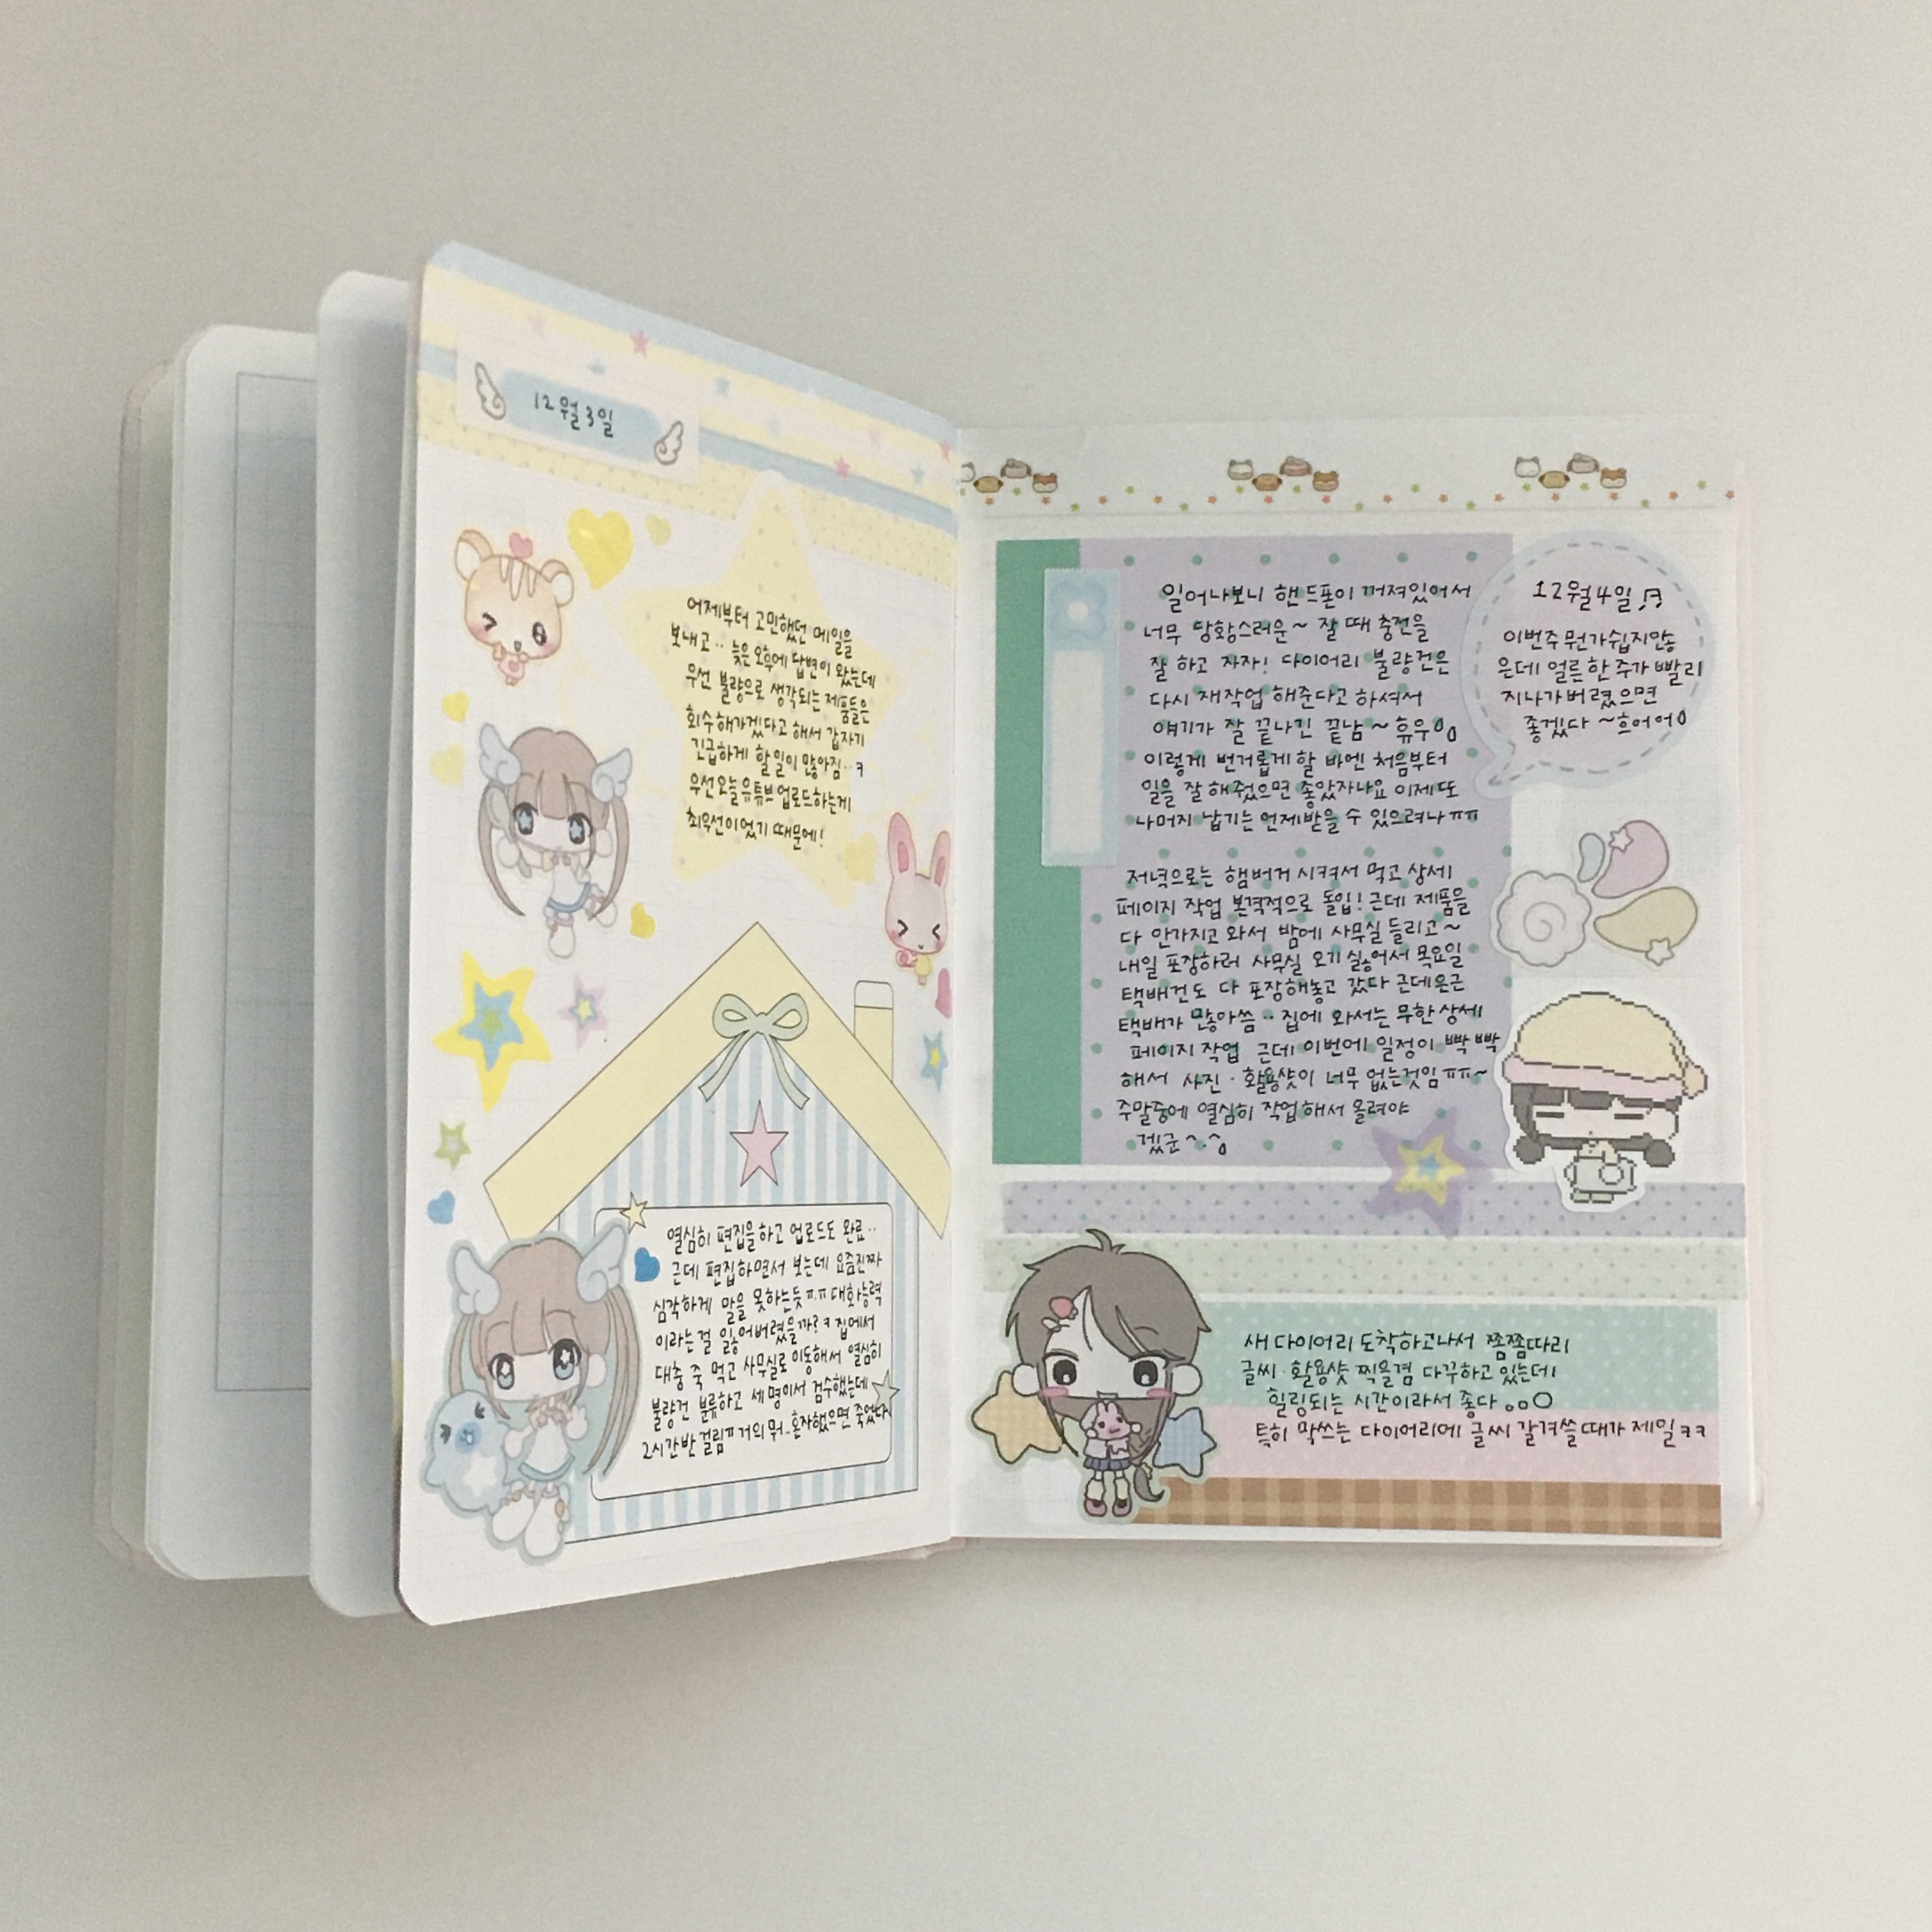 12월3일
어제부터 고민했던 메일을
보내고.. 늦은 오후에 답변이 왔는데
우선 불량으로 생각되는 제품들은
회수해가겠다고 해서 갑자기
긴급하게 할 일이 많아짐..ㅋ
우선 오늘 유튜브 업로드하는게
최우선이었기 때문에!
열심히 편집을하고 업로드도 완료..
근데 편집하면서 보는데 요즘진짜
심각하게 말을 못하는듯ㅠㅠ 대화능력
이라는걸 잃어버렸을까?ㅋ 집에서
대충 죽 먹고 사무실로 이동해서 열심히
불량건 분류하고 세명이서 검수했는데
2시간반 걸림ㄲ 거의 뭐..혼자했으면 죽었다
12월4일♬
이번주 뭔가쉽지만않
은데 얼른 한 주가 빨리
지나가버렸으면
좋겠다 ~흐어어
일어나보니 핸드폰이 꺼져있어서
너무 당황스러운~ 잘 때 충전을
잘 하고 자자! 다이어리 불량건은
다시 재작업 해준다고 하셔서
얘기가 잘 끝나긴 끝남~휴우
이렇게 번거롭게 할 바엔 처음부터
일을 잘해줬으면 좋았자나요 이제또
나머지 납기는 언제받을 수 있으려나ㅠㅠ
저녁으로는 햄버거 시켜서 먹고 상세
페이지 작업 본격적으로 돌입! 근데 제품을
다 안가지고 와서 밤에 사무실 들리고~
내일 포장하러 사무실 오기 싫어서 목요일
택배건도 다 포장해놓고 갔다 근데은근
택배가 많아씀.. 집에 와서는 무한 상세
페이지 작업 근데 이번에 일정이 빡빡
해서 사진·활용샷이 너무 없는것임ㅠㅠ~
주말중에 열심히 작업해서 올려야
겠군^.^
새 다이어리 도착하고나서 쫌쫌따리
글씨·활용샷 찍을겸 다꾸하고 있는데
힐링되는 시간이라서 좋다
특히 막쓰는 다이어리에 글씨 갈겨쓸때가 제일ㅋㅋ